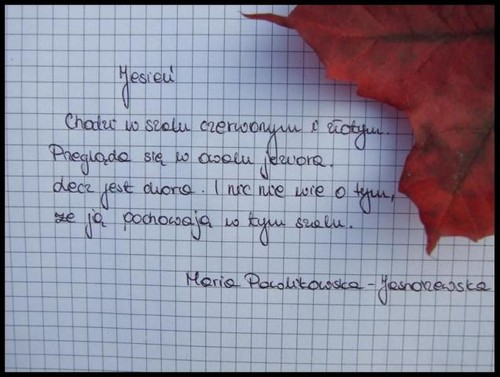 Jesień
Chodzi w szalu czerwonym i złotym.
Przegląda się w owalu jeziora.
Lecz jest chora. I nic nie wie o tym,
że ją pochowają w tym szalu.
Maria Pawlikowska-Jasnorzewska